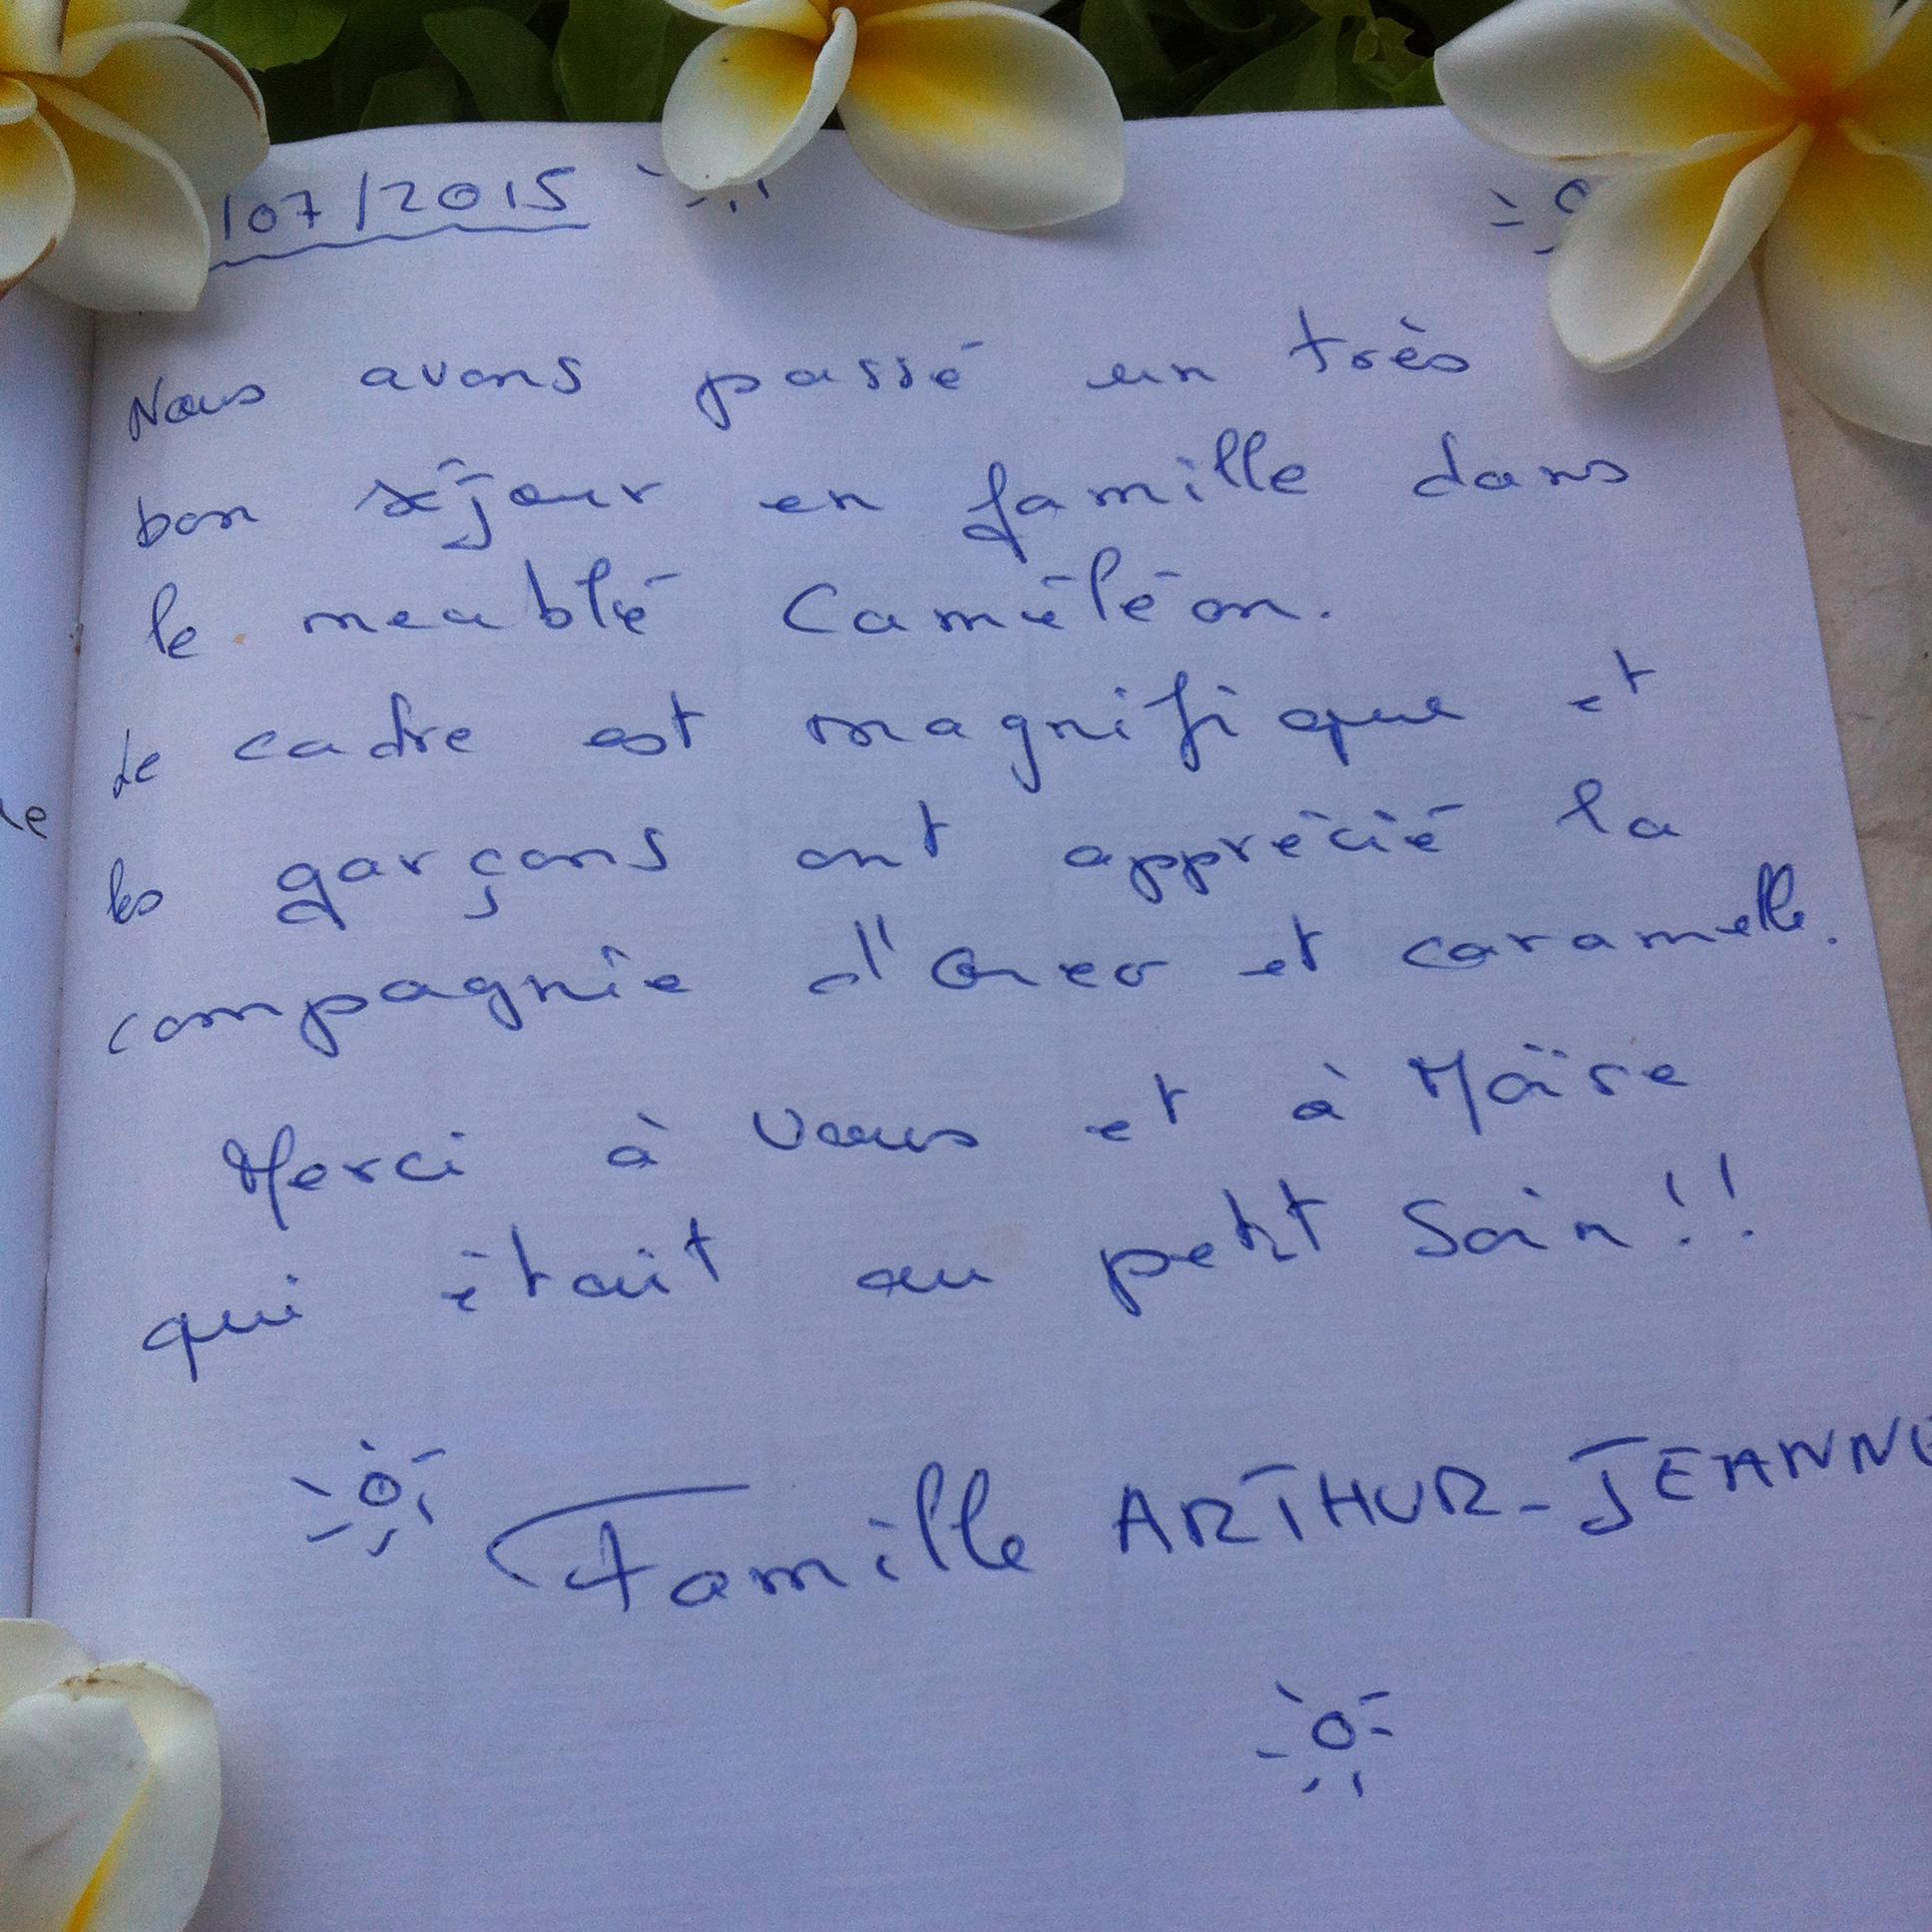 /07/2015
Nous avons passé un très
bon séjour en famille dans
le meublé Caméléon.
Le cadre est magnifique et
les garçons ont apprécié la
compagnie d'Oreo et caramelle.
Merci à vous et à Maïse
qui était au petit soin !!
Famille ARTHUR-JEANNE
le